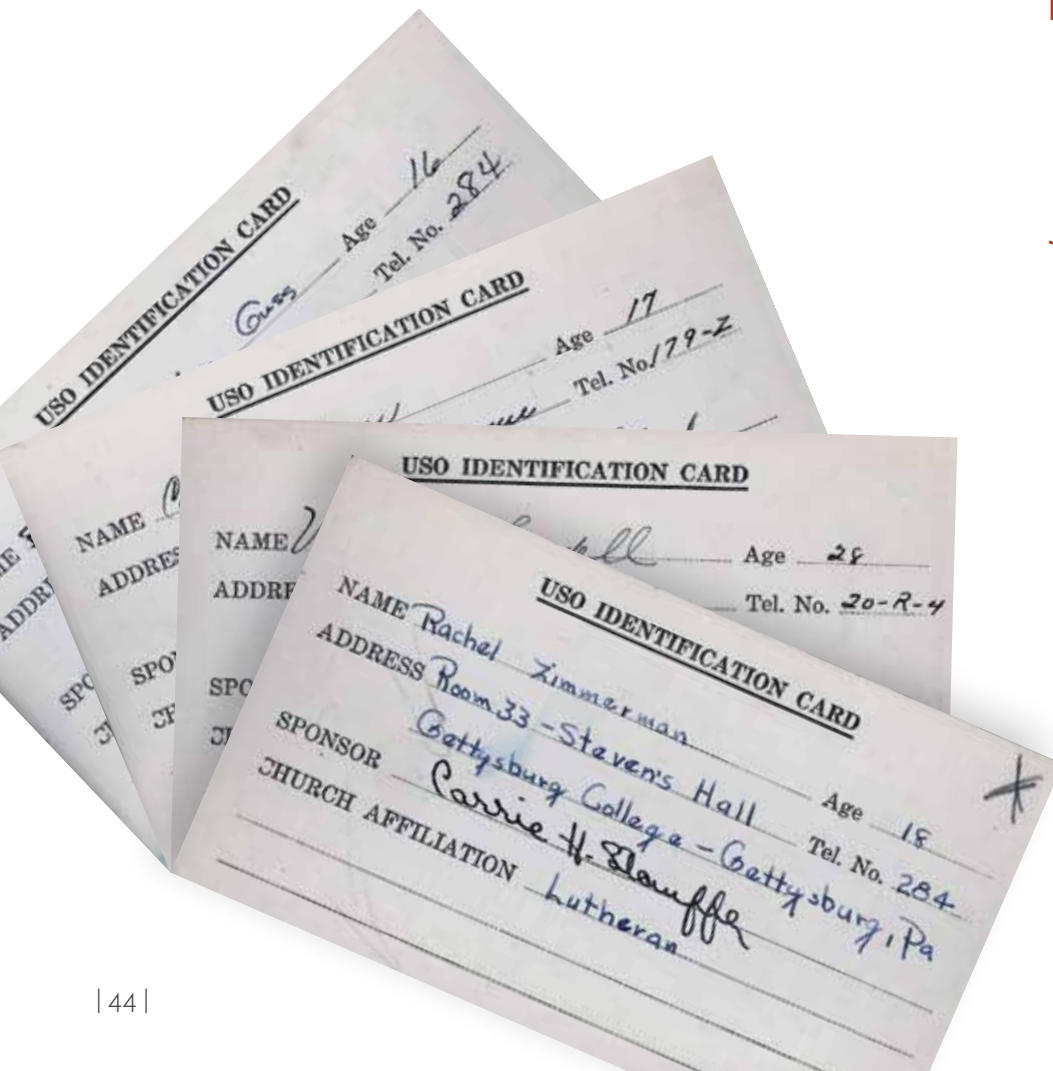 USO IDENTIFICATION CARD
Guss Age 16
Tel. No. 284
USO IDENTIFICATION CARD
Age 17
Tel. No. 179-Z
NAME
ADDRES
SPO
CH
USO IDENTIFICATION CARD
NAME Age 28
ADDRE Tel. No. 20-R-4
SPO
USO IDENTIFICATION CARD
NAME Rachel Zimmerman Age 18
ADDRESS Room 33 - Steven's Hall Tel. No. 284
Gettysburg College - Gettysburg, Pa
SPONSOR Carrie H. Stauffer
CHURCH AFFILIATION Lutheran
| 44 |